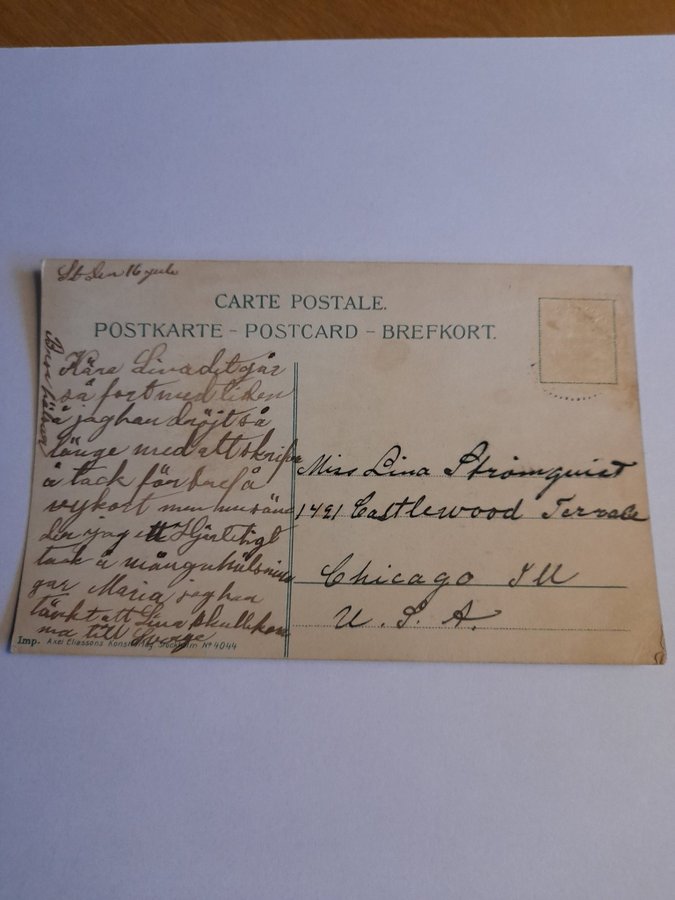 St den 16 jule
CARTE POSTALE.
POSTKARTE - POSTCARD - BREFKORT.
Kära Lina det går
så fort med tiden
å jag har dröjt så
länge med att skrifva
å tack för bref å
vykort men nu sän
der jag ett Hjertligt
tack å många hälsnin
gar Maria jag har
tänkt att Lina skulle kom
ma till Sverge
Miss Lina Strömquist
1421 Castlewood Terrace
Chicago Ill
U. S. A.
Imp. Axel Eliassons Konstförlag, Stockholm No 4044